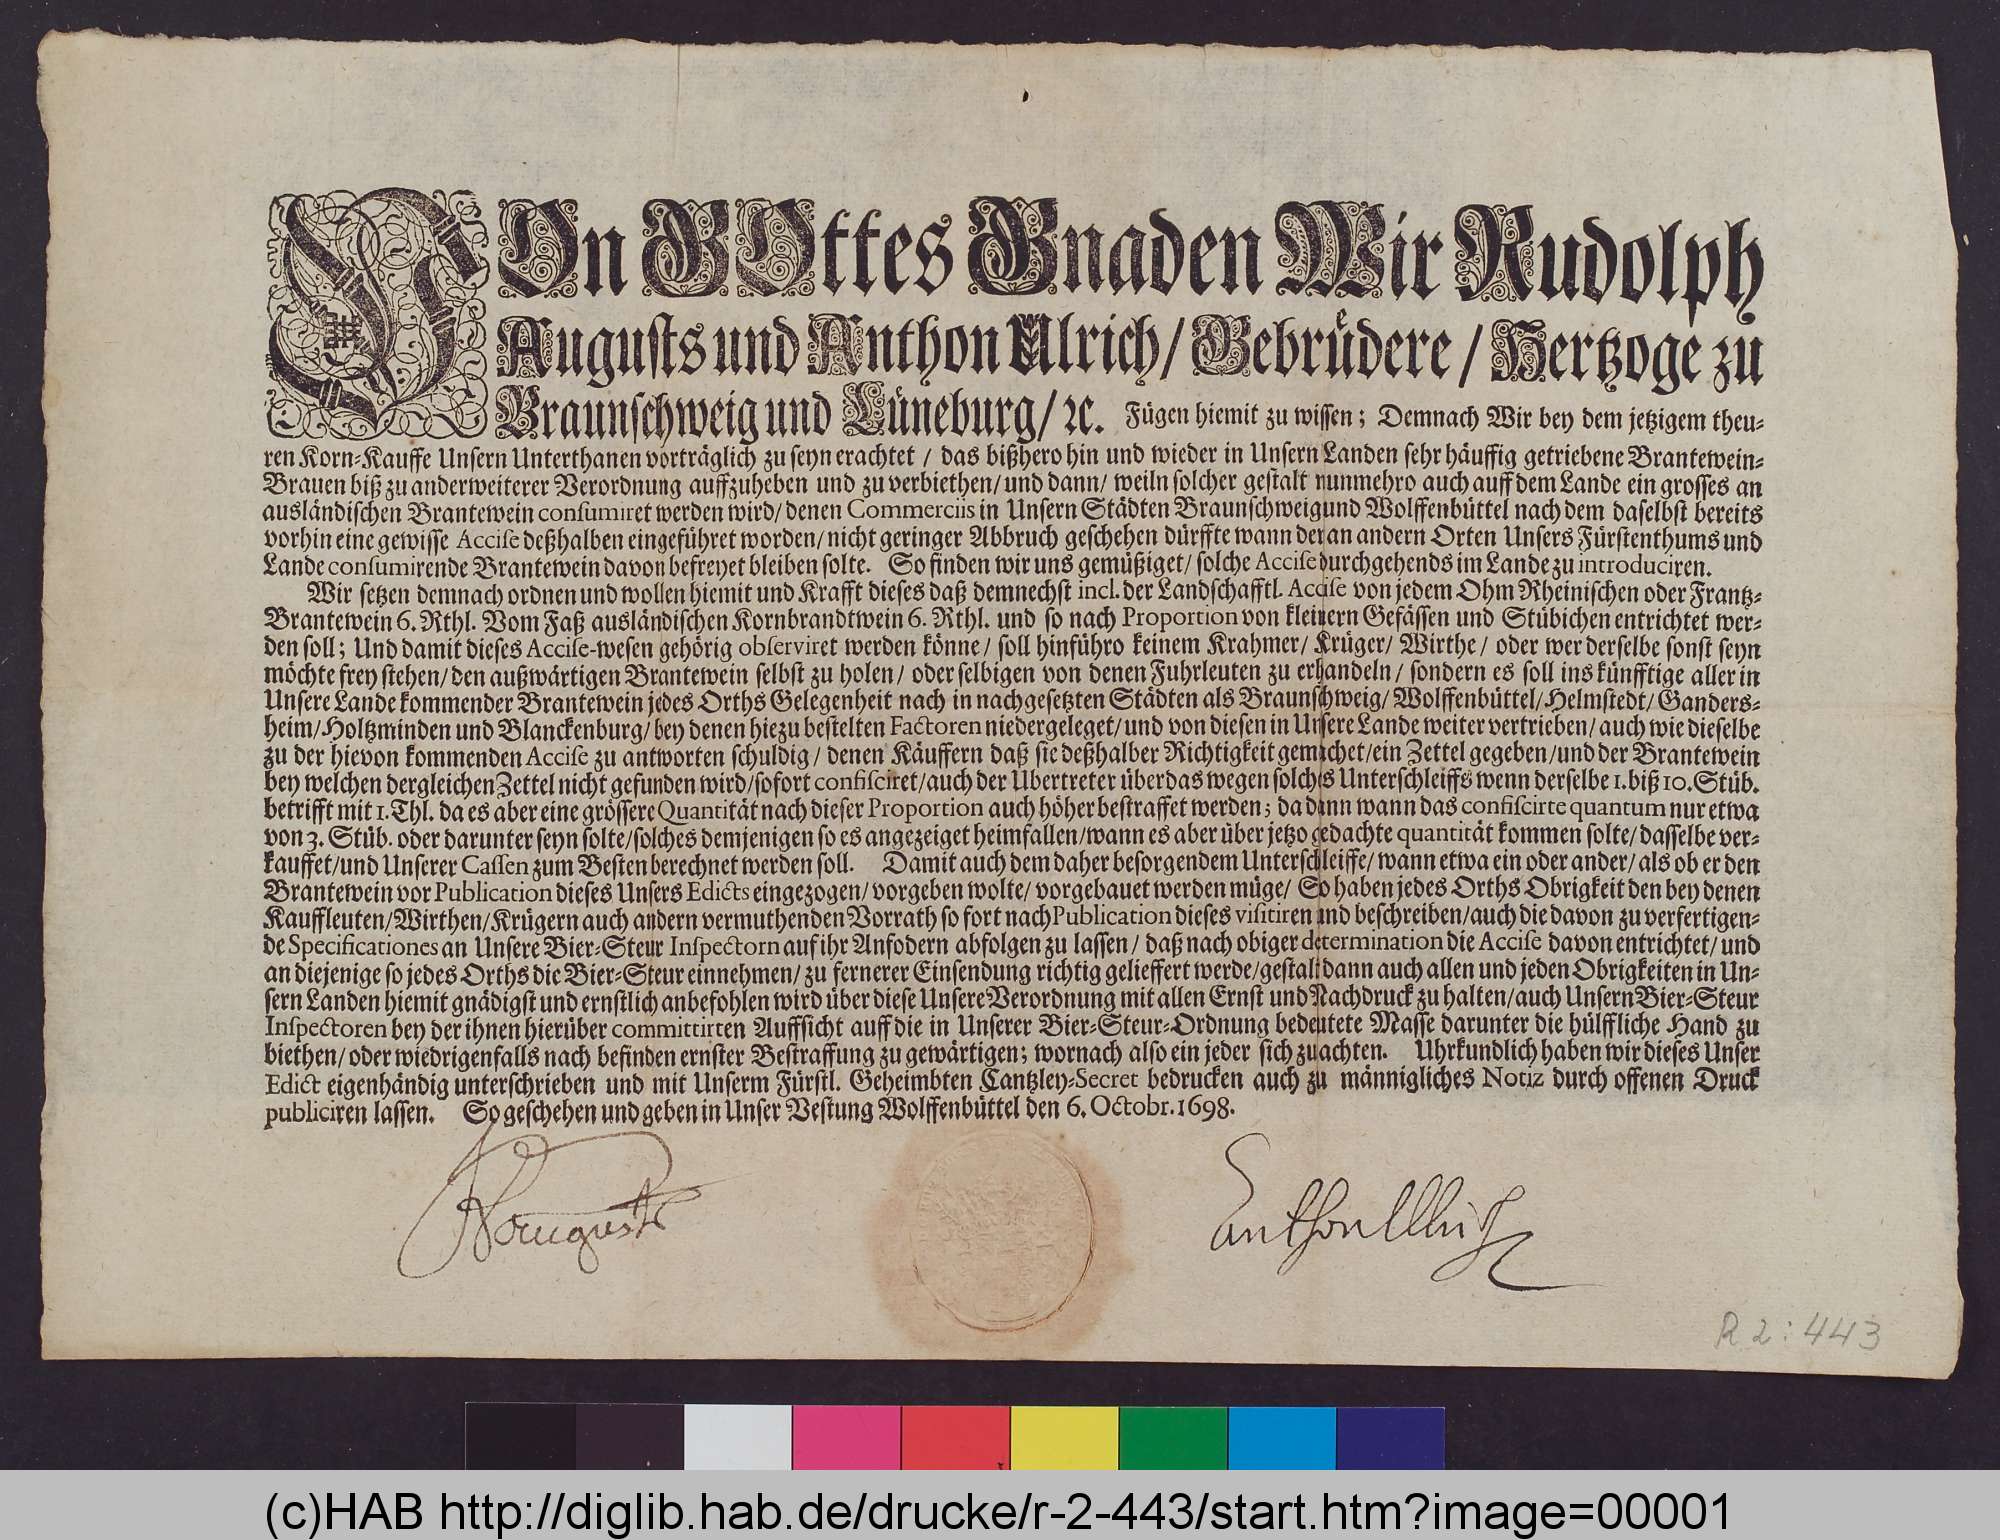 VOn GOttes Gnaden Wir Rudolph
Augusts und Anthon Ulrich/ Gebrüdere/ Hertzoge zu
Braunschweig und Lüneburg/ ꝛc. Fügen hiemit zu wissen; Demnach Wir bey dem jetzigem theu-
ren Korn-Kauffe Unsern Unterthanen vorträglich zu seyn erachtet / das bißhero hin und wieder in Unsern Landen sehr häuffig getriebene Brantewein-
Brauen biß zu anderweiterer Verordnung auffzuheben und zu verbiethen/ und dann/ weiln solcher gestalt nunmehro auch auff dem Lande ein grosses an
ausländischen Brantewein consumiret werden wird/ denen Commerciis in Unsern Städten Braunschweig und Wolffenbüttel nach dem daselbst bereits
vorhin eine gewisse Accise deßhalben eingeführet worden/ nicht geringer Abbruch geschehen dürffte wann der an andern Orten Unsers Fürstenthums und
Lande consumirende Brantewein davon befreyet bleiben solte. So finden wir uns gemüßiget/ solche Accise durchgehends im Lande zu introduciren.
Wir setzen demnach ordnen und wollen hiemit und Krafft dieses daß demnechst incl. der Landschafftl. Accise von jedem Ohm Rheinischen oder Frantz-
Brantewein 6. Rthl. Vom Faß ausländischen Kornbrandtwein 6. Rthl. und so nach Proportion von kleinern Gefässen und Stübichen entrichtet wer-
den soll; Und damit dieses Accise-wesen gehörig observiret werden könne/ soll hinführo keinem Krahmer/ Krüger/ Wirthe/ oder wer derselbe sonst seyn
möchte frey stehen/ den außwärtigen Brantewein selbst zu holen/ oder selbigen von denen Fuhrleuten zu erhandeln/ sondern es soll ins künfftige aller in
Unsere Lande kommender Brantewein jedes Orths Gelegenheit nach in nachgesetzten Städten als Braunschweig/ Wolffenbüttel/ Helmstedt/ Ganders-
heim/ Holtzminden und Blanckenburg/ bey denen hiezu bestelten Factoren niedergeleget/ und von diesen in Unsere Lande weiter vertrieben/ auch wie dieselbe
zu der hievon kommenden Accise zu antworten schuldig/ denen Käuffern daß sie deßhalber Richtigkeit gemachet/ ein Zettel gegeben/ und der Brantewein
bey welchen dergleichen Zettel nicht gefunden wird/ sofort confisciret/ auch der Ubertreter überdas wegen solches Unterschleiffs wenn derselbe 1. biß 10. Stüb.
betrifft mit 1. Thl. da es aber eine grössere Quantität nach dieser Proportion auch höher bestraffet werden; da dann wann das confiscirte quantum nur etwa
von 3. Stüb. oder darunter seyn solte/ solches demjenigen so es angezeiget heimfallen/ wann es aber über jetzo gedachte quantität kommen solte/ dasselbe ver-
kauffet/ und Unserer Cassen zum Besten berechnet werden soll. Damit auch dem daher besorgendem Unterschleiffe/ wann etwa ein oder ander/ als ob er den
Brantewein vor Publication dieses Unsers Edicts eingezogen/ vorgeben wolte/ vorgebauet werden müge/ So haben jedes Orths Obrigkeit den bey denen
Kauffleuten/ Wirthen/ Krügern auch andern vermuthenden Vorrath so fort nach Publication dieses visitiren und beschreiben/ auch die davon zu verfertigen-
de Specificationes an Unsere Bier-Steur Inspectorn auf ihr Anfodern abfolgen zu lassen/ daß nach obiger determination die Accise davon entrichtet/ und
an diejenige so jedes Orths die Bier-Steur einnehmen/ zu fernerer Einsendung richtig gelieffert werde/ gestalt dann auch allen und jeden Obrigkeiten in Un-
sern Landen hiemit gnädigst und ernstlich anbefohlen wird über diese Unsere Verordnung mit allen Ernst und Nachdruck zu halten/ auch Unsern Bier-Steur
Inspectoren bey der ihnen hierüber committirten Auffsicht auff die in Unserer Bier-Steur-Ordnung bedeutete Masse darunter die hülffliche Hand zu
biethen/ oder wiedrigenfalls nach befinden ernster Bestraffung zu gewärtigen; wornach also ein jeder sich zu achten. Uhrkundlich haben wir dieses Unser
Edict eigenhändig unterschrieben und mit Unserm Fürstl. Geheimbten Cantzley-Secret bedrucken auch zu männigliches Notiz durch offenen Druck
publiciren lassen. So geschehen und geben in Unser Vestung Wolffenbüttel den 6. Octobr. 1698.
RAugusts
Anthon Ulrich
R 2 : 443
(c)HAB http://diglib.hab.de/drucke/r-2-443/start.htm?image=00001